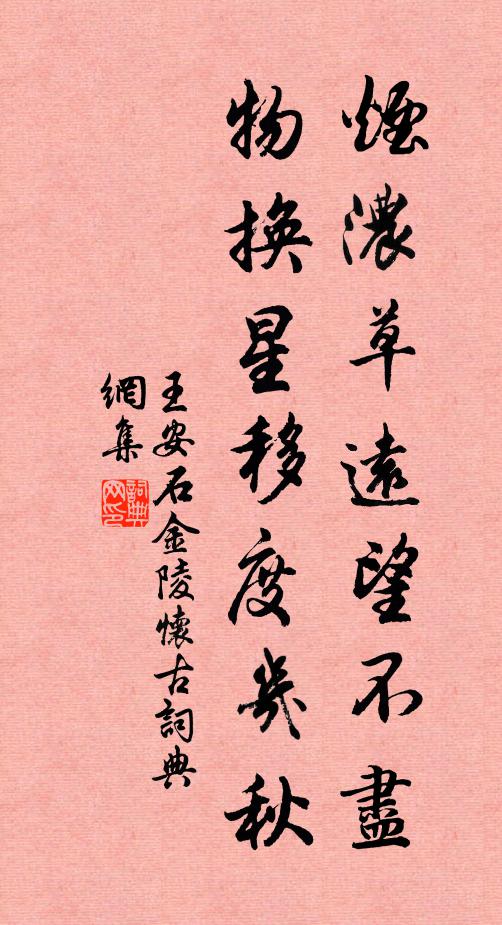 煙濃草遠望不盡
物換星移度幾秋
王安石金陵懷古詞典
網集
詞典
网印